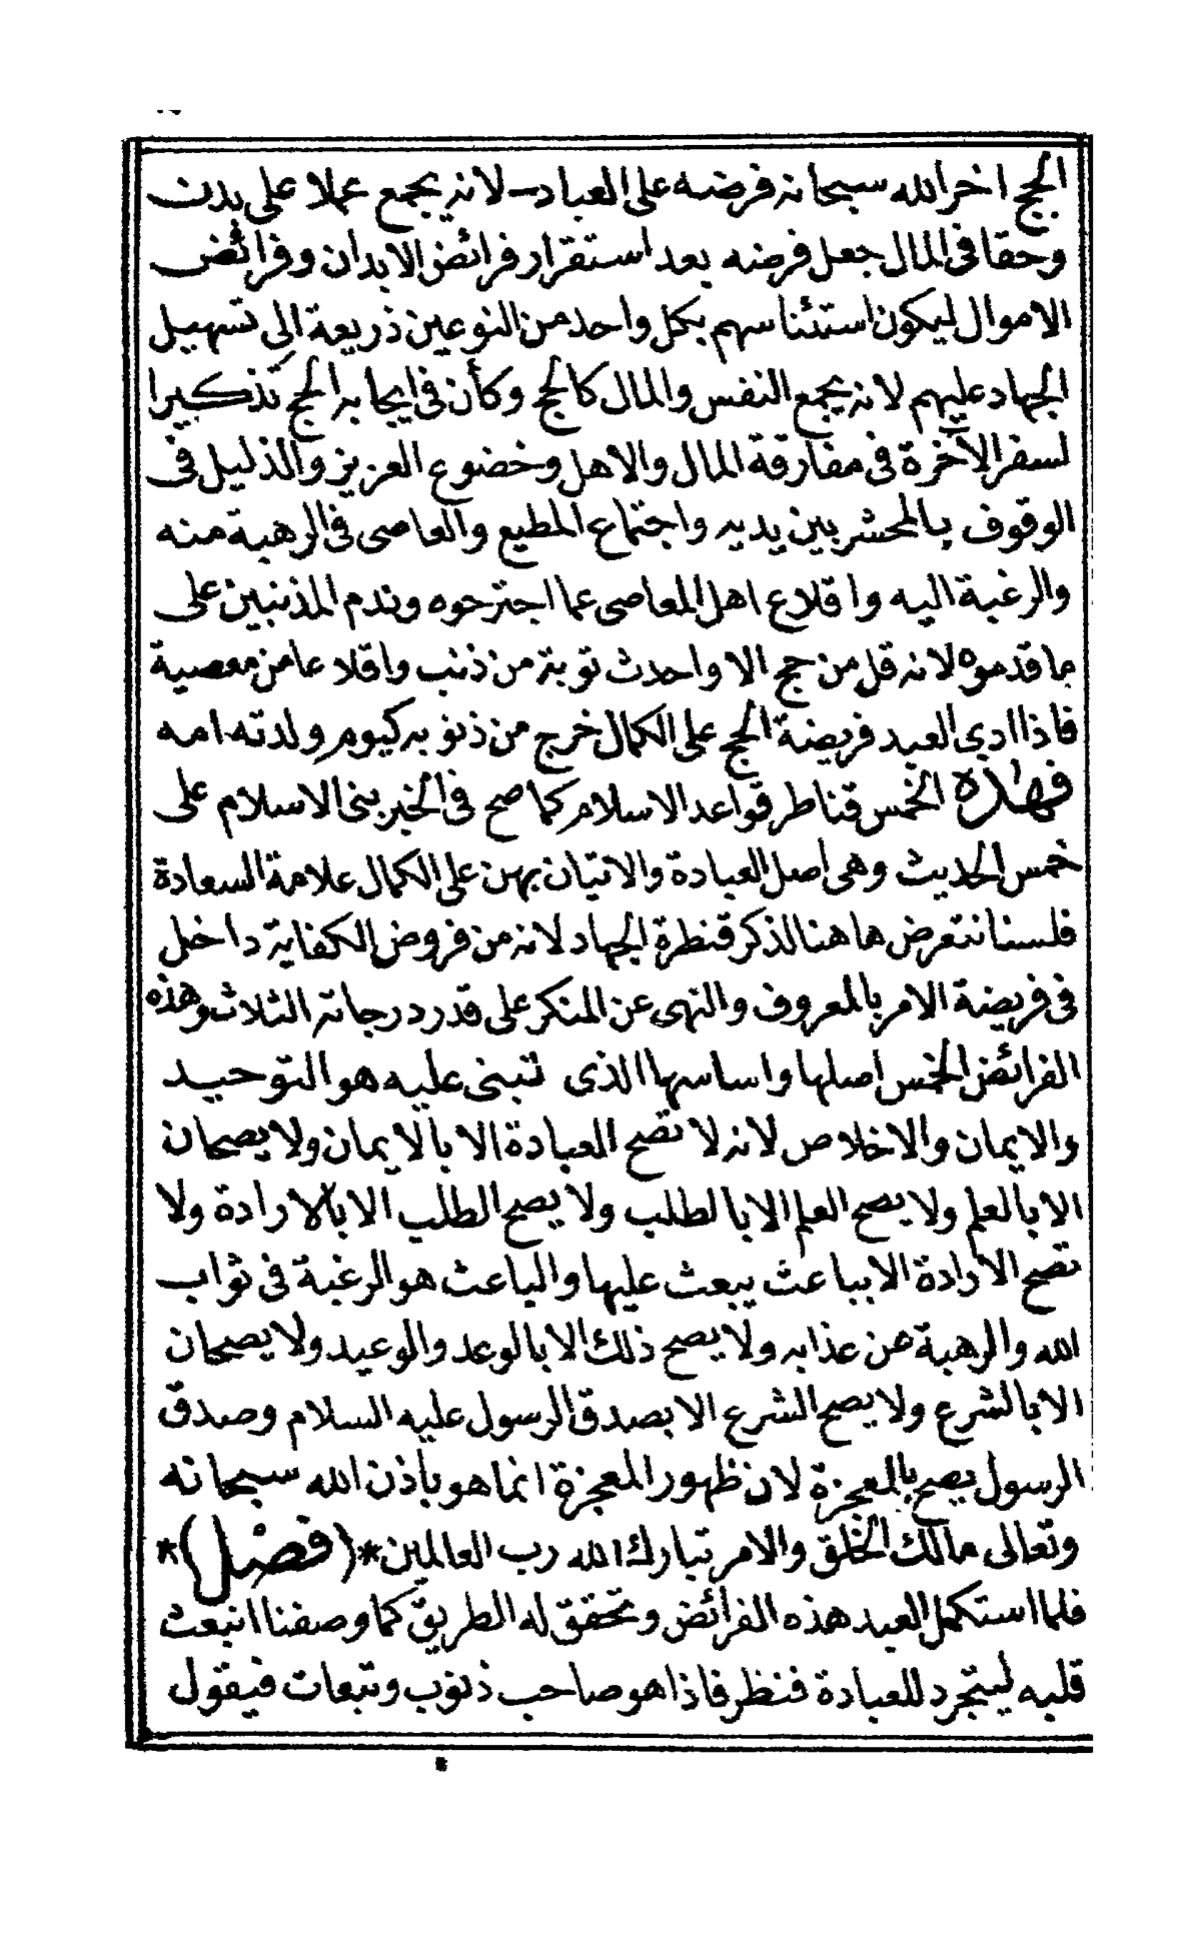 الحج اخر الله سبحانه فرضه على العباد لانه يجمع عملا على بدن
وحقا فى المال جعل فرضه بعد استقرار فرائض الابدان وفرائض
الاموال ليكون استئناسهم بكل واحد من النوعين ذريعة الى تسهيل
الجهاد عليهم لانه يجمع النفس والمال كالحج وكأن فى ايجابه الحج تذكيرا
لسفر الآخرة فى مفارقة المال والاهل وخضوع العزيز والذليل فى
الوقوف بالمحشر بين يديه واجتماع المطيع والعاصى فى الرهبة منه
والرغبة اليه واقلاع اهل المعاصى عما اجترحوه وندم المذنبين على
ما قدموه لانه قل من حج الا واحدث توبة من ذنب واقلاعا من معصية
فاذا ادى العبد فريضة الحج على الكمال خرج من ذنوبه كيوم ولدته امه
فهذه الخمس قناطر قواعد الاسلام كما صح فى الخبر بنى الاسلام على
خمس الحديث وهى اصل العبادة والاتيان بهن على الكمال علامة السعادة
فلسنا نتعرض هاهنا لذكر قنطرة الجهاد لانه من فروض الكفاية داخل
فى فريضة الامر بالمعروف والنهى عن المنكر على قدر درجاته الثلاث وهذه
الفرائض الخمس اصلها واساسها الذى تبنى عليه هو التوحيد
والايمان والاخلاص لانه لا تصح العبادة الا بالايمان ولا يصحان
الا بالعلم ولا يصح العلم الا بالطلب ولا يصح الطلب الا بالارادة ولا
تصح الارادة الا بباعث يبعث عليها والباعث هو الرغبة فى ثواب
الله والرهبة من عذابه ولا يصح ذلك الا بالوعد والوعيد ولا يصحان
الا بالشرع ولا يصح الشرع الا بصدق الرسول عليه السلام وصدق
الرسول يصح بالمعجزة لان ظهور المعجزة انما هو باذن الله سبحانه
وتعالى مالك الخلق والامر تبارك الله رب العالمين *(فصل)*
فلما استكمل العبد هذه الفرائض وتحقق له الطريق كما وصفنا انبعث
قلبه ليتجرد للعبادة فنظر فاذا هو صاحب ذنوب وتبعات فيقول